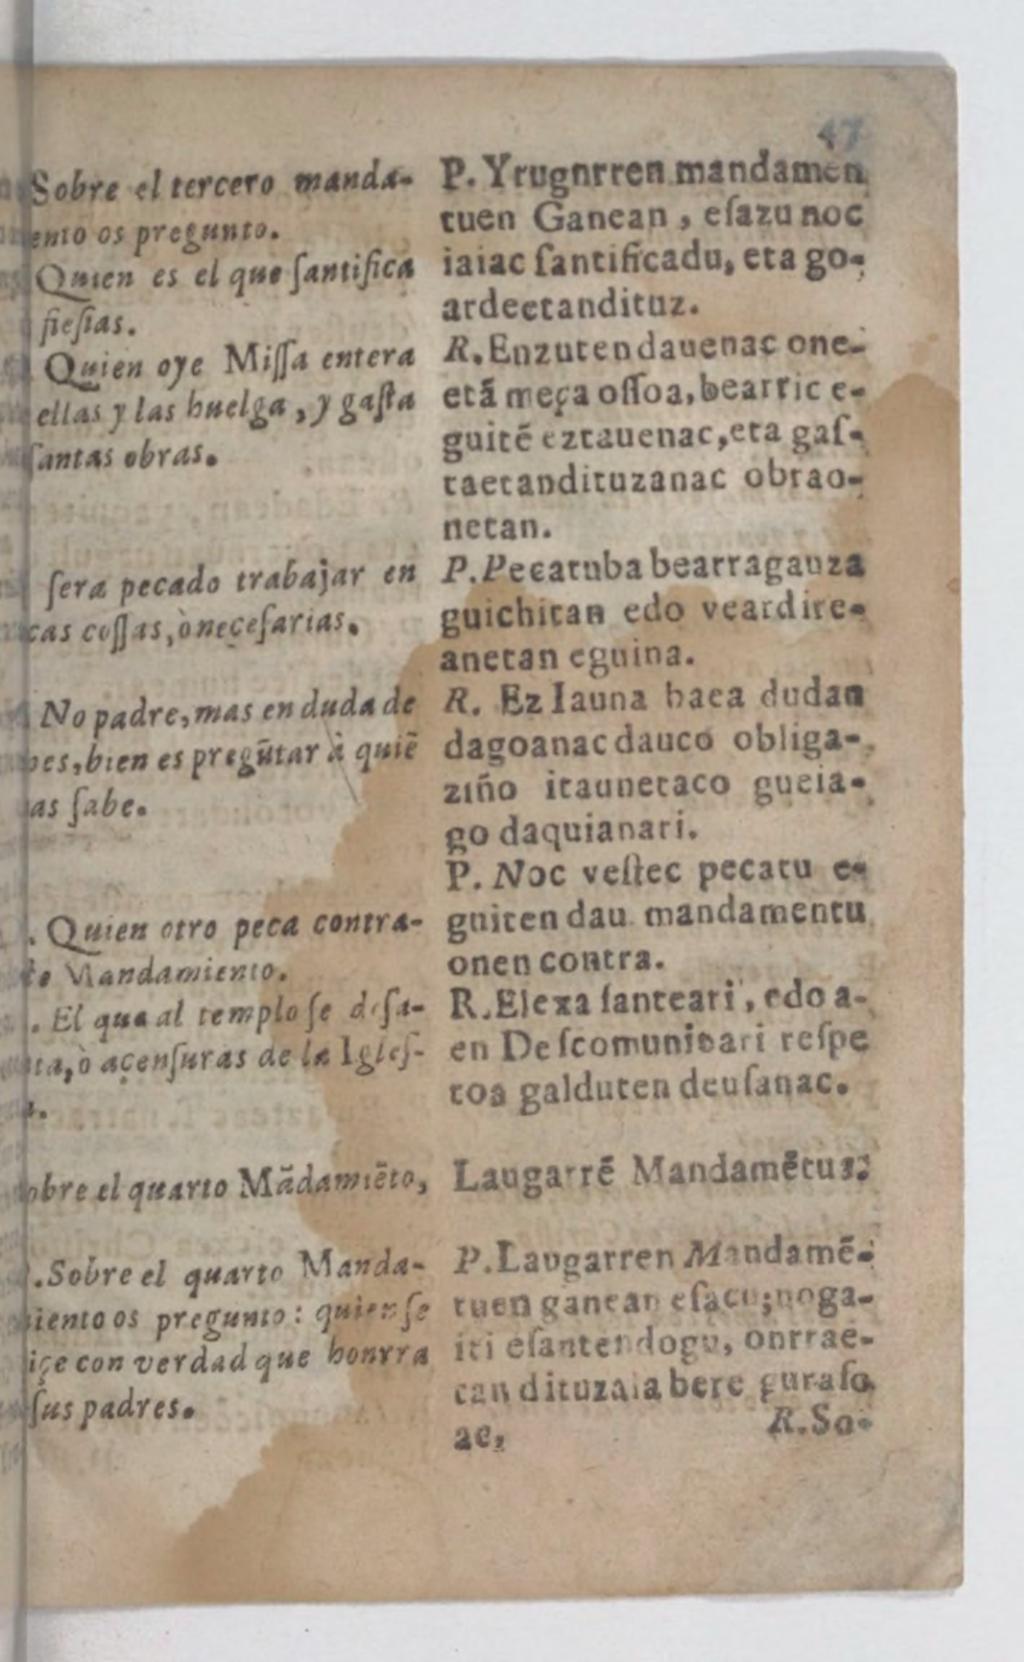 47
Sobre el tercero manda-
ento os pregunto.
Quien es el que ſantifica
fieſias.
Quien oye Miſſa entera
ellas y las huelga, y gaſta
ſantas obras.
ſera pecado trabajar en
cas coſſas, ò neçeſarias.
No padre, mas en duda de
es, bien es pregũtar à quiẽ
as ſabe.
. Quien otro peca contra-
Mandamiento.
. El que al templo ſe deſa-
ta, ò açenſuras de la Igleſ-
a.
obre el quarto Mãdamiẽto,
.Sobre el quarto Manda-
iento os pregunto: quien ſe
içe con verdad que honrra
ſus padres.
P. Yrugnrren mandamen
tuen Ganean, eſazu noc
iaiac ſantificadu, eta go-
ardeetandituz.
R. Enzutendauenac one-
etã meça oſſoa, bearric e-
guitẽ eztauenac, eta gaſ-
taetandituzanac obrao-
netan.
P. Pecatuba bearragauza
guichitan edo veardire-
anetan eguina.
R. Ez Iauna baea dudan
dagoanac dauco obliga-
ziño itaunetaco gueia-
go daquianari.
P. Noc veſtec pecatu e-
guiten dau mandamentu
onen contra.
R. Elexa ſanteari, edo a-
en Deſcomunioari reſpe
toa galduten deuſanac.
Laugarrẽ Mandamẽtus:
P. Laugarren Mandamẽ-
tuen ganean eſacu; noga-
iti eſantendogu, onrrae-
can dituzala bere guraſo
ac,
R. So-